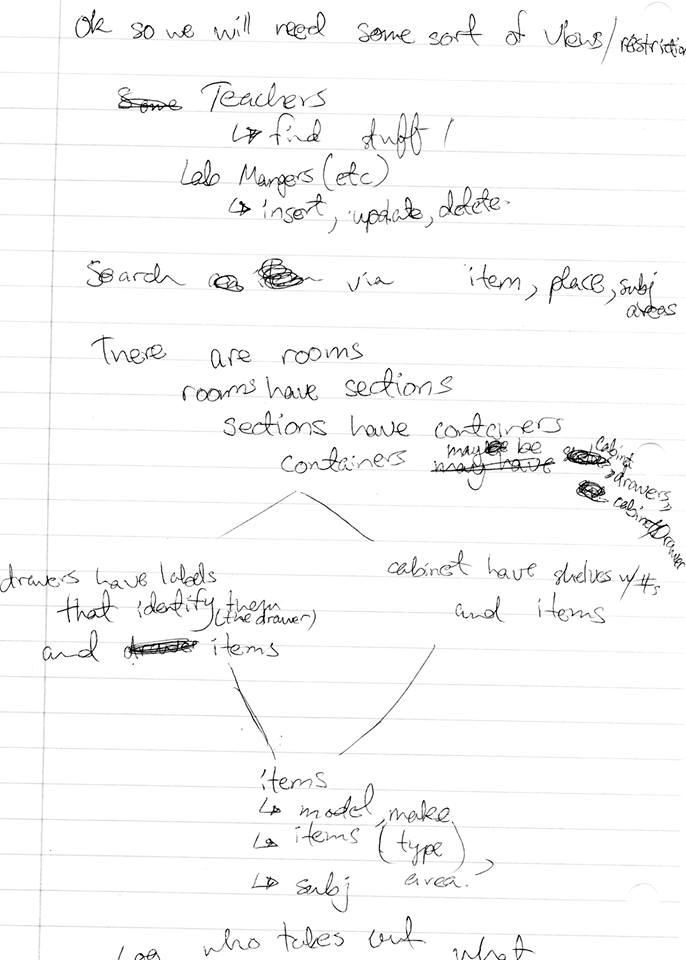 Ok so we will need some sort of views/restriction
Some Teachers
↳ find stuff /
Lab Mangers (etc)
↳ insert, update, delete.
Search via item, place, subj
areas
There are rooms
rooms have sections
sections have containers
containers may be be cabinet
may have drawers,
cabinet/Drawer
drawers have labels
that identify them
(the drawer)
and drawer items
cabinet have shelves w/ #s
and items
items
↳ model, make,
↳ items (type)
↳ subj area.
Log who takes out what